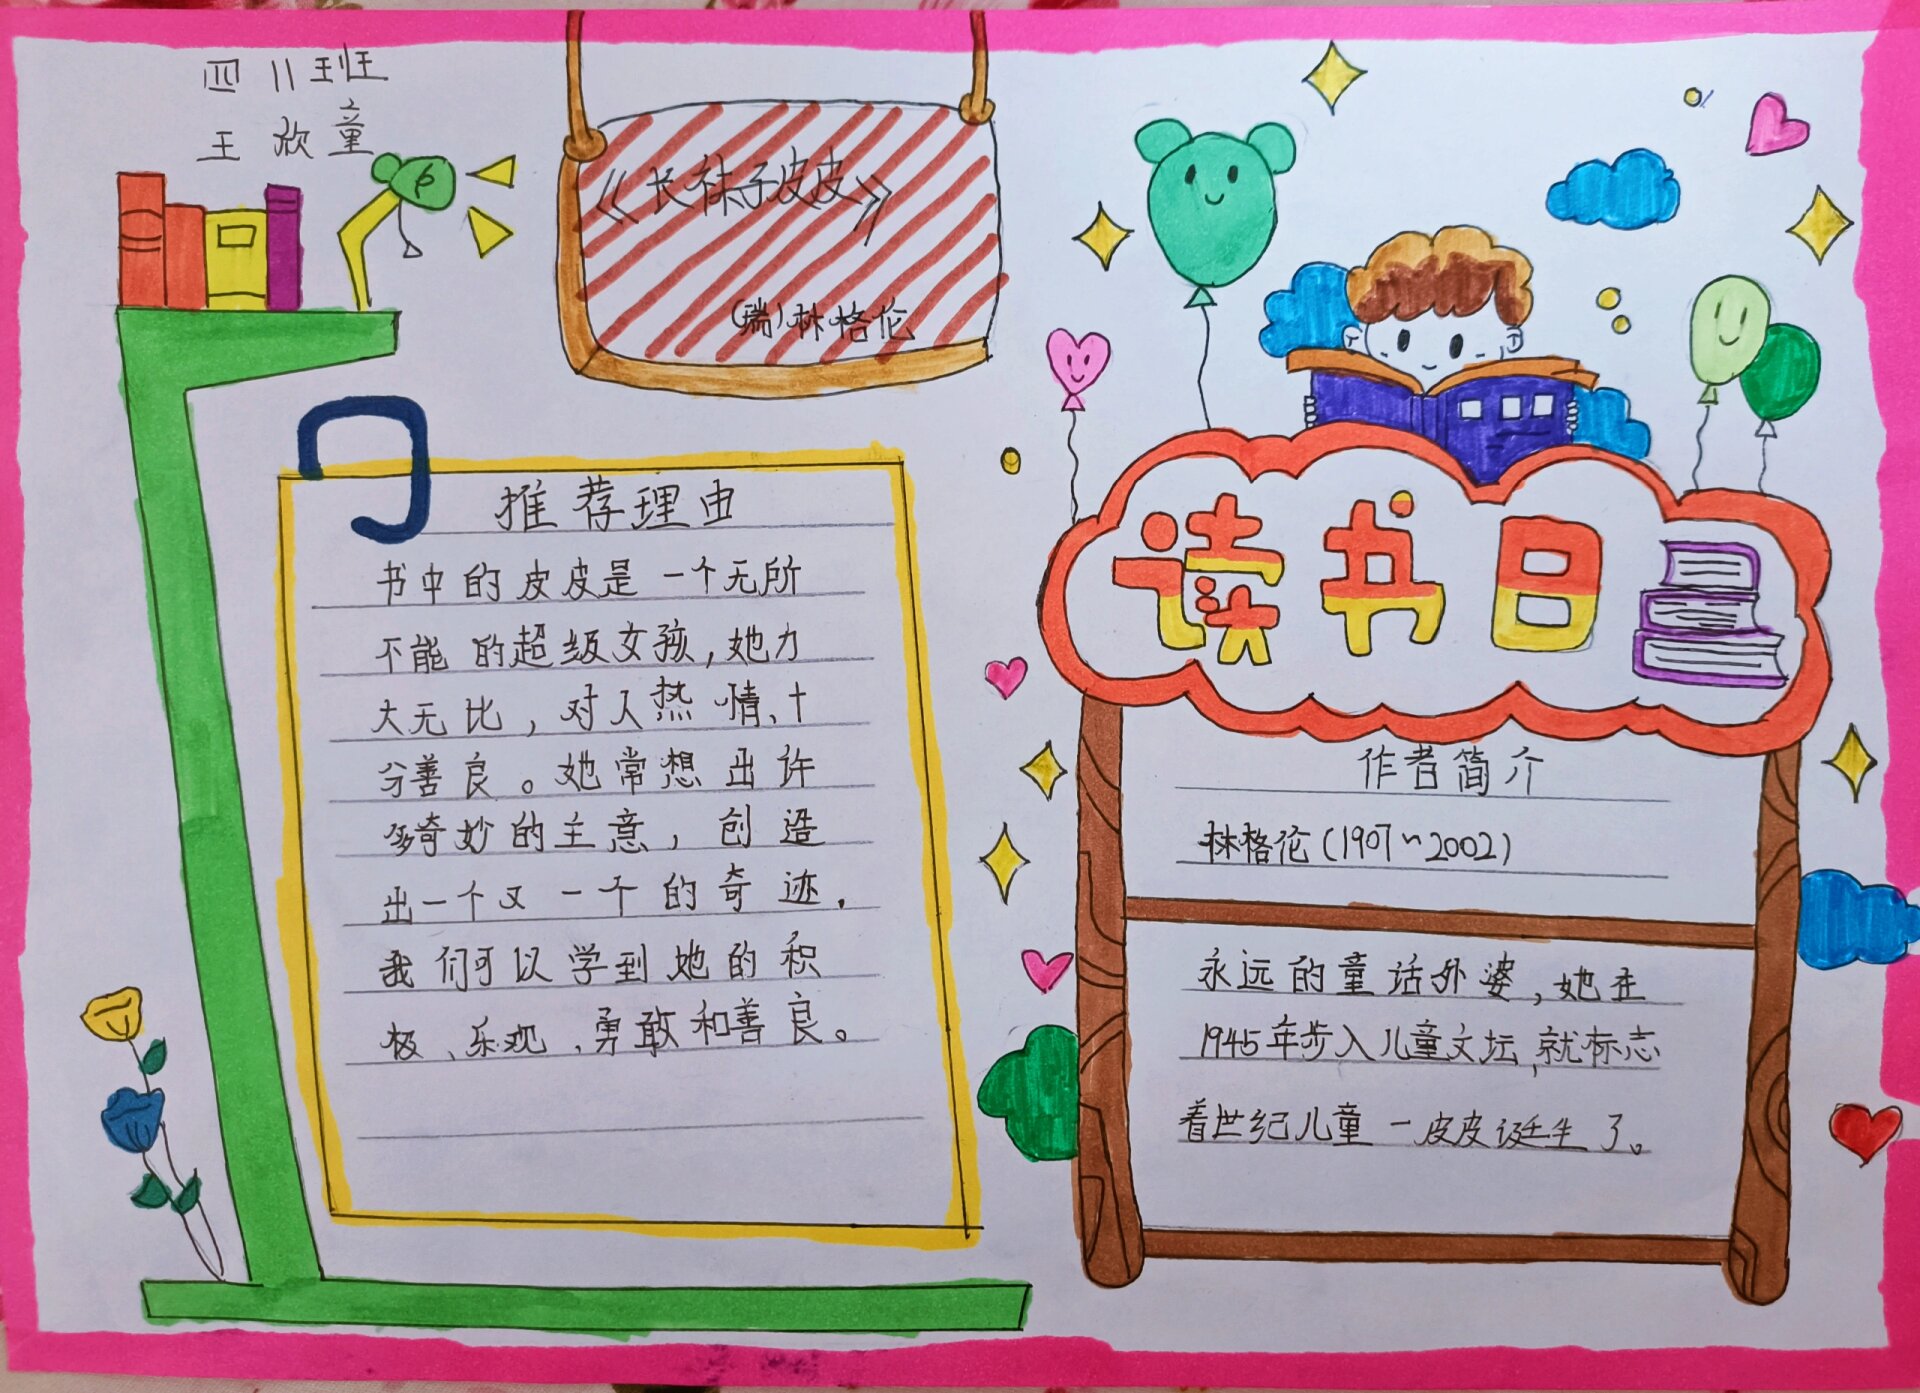 四11班
王欣童
《长袜子皮皮》
(瑞)林格伦
推荐理由
书中的皮皮是一个无所
不能的超级女孩,她力
大无比,对人热情、十
分善良。她常想出许
多奇妙的主意,创造
出一个又一个的奇迹.
我们可以学到她的积
极、乐观、勇敢和善良。
读书日
作者简介
林格伦(1907~2002)
永远的童话外婆,她在
1945年步入儿童文坛,就标志
着世纪儿童一皮皮诞生了。